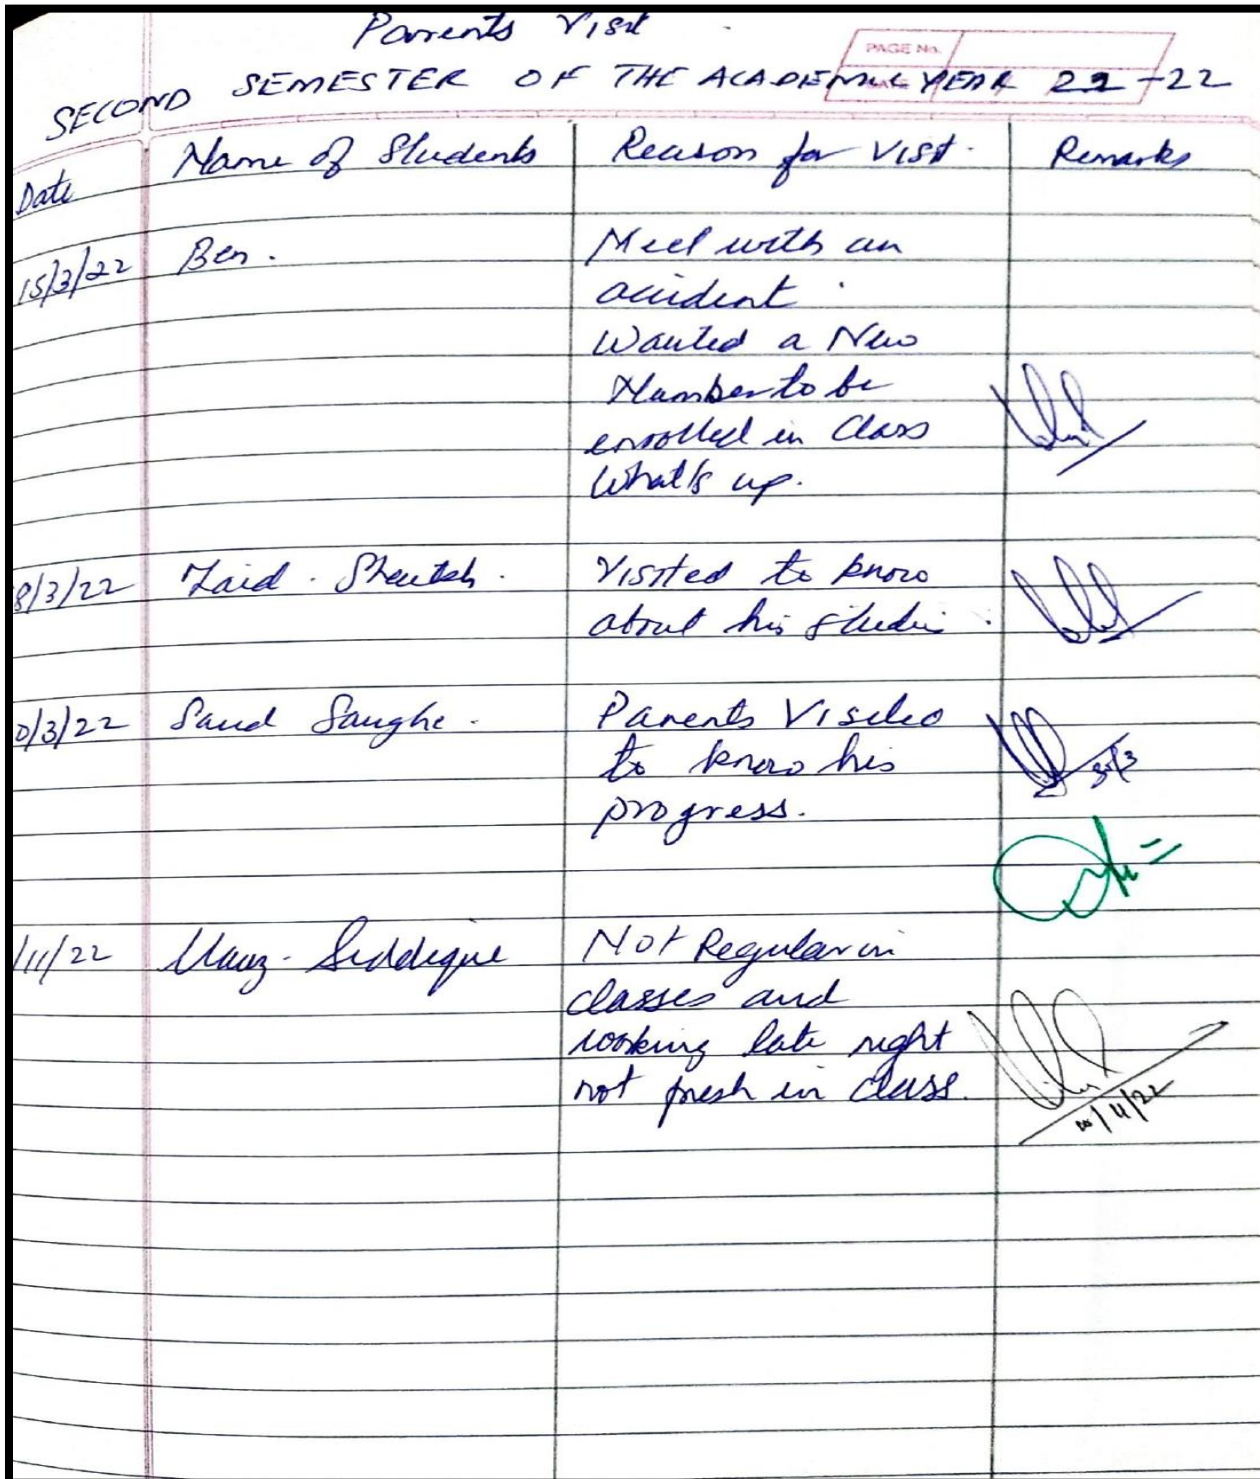 Parents Visit
PAGE No.
SECOND SEMESTER OF THE ACADEMIC YEAR 22-22
Date Name of Students Reason for Visit. Remarks
15/3/22 Ben. Meet with an
accident.
Wanted a New
Number to be
enrolled in Class
What's up.
8/3/22 Zaid. Sheikh. Visited to know
about his studies.
0/3/22 Saud Sanghe. Parents Visited
to know his
progress.
30/3
/11/22 Siddique Not Regular in
classes and
working late night
not fresh in class.
/11/22